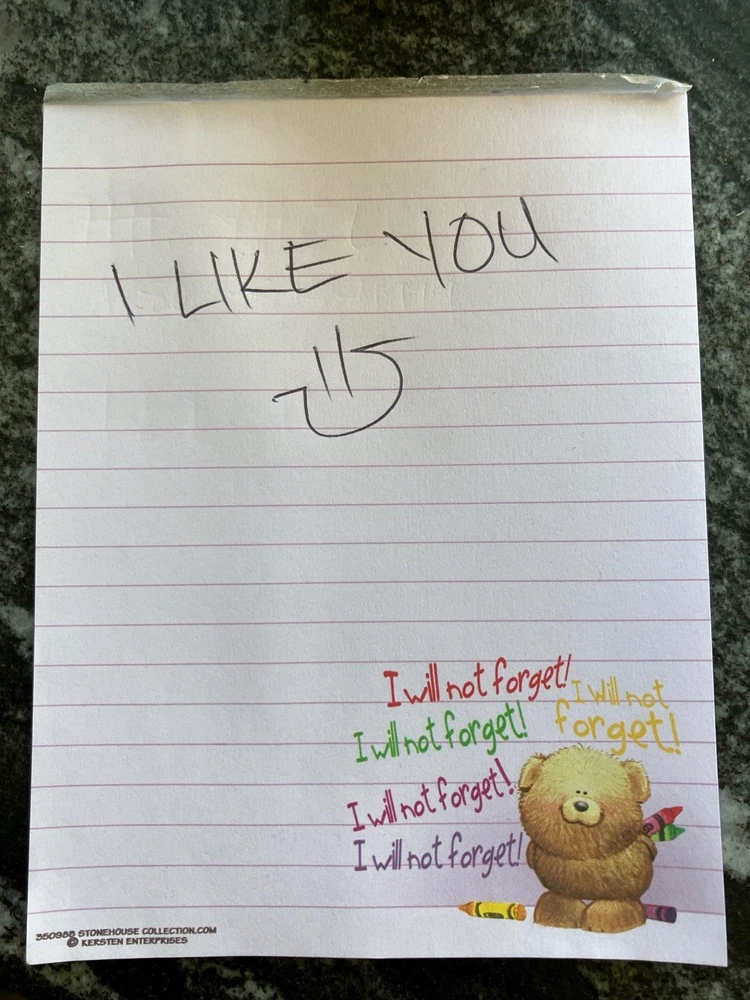 I LIKE YOU
I will not forget!
I will not
forget!
I will not forget!
I will not forget!
I will not forget!
350988 STONEHOUSE COLLECTION.COM
© KERSTEN ENTERPRISES